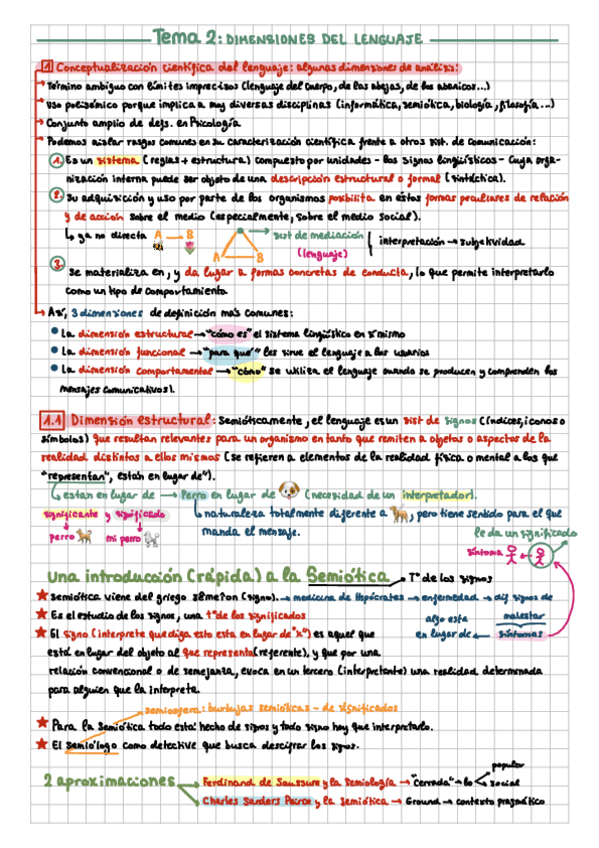 Tema 2: DIMENSIONES DEL LENGUAJE
1 Conceptualización científica del lenguaje: algunas dimensiones de análisis:
Término ambiguo con límites imprecisos (lenguaje del cuerpo, de las abejas, de los abanicos...)
Uso polisémico porque implica a muy diversas disciplinas (informática, semiótica, biología, filosofía...)
Conjunto amplio de defs. en Psicología
Podemos aislar rasgos comunes en su caracterización científica frente a otros sist. de comunicación:
1. Es un sistema (reglas + estructura) compuesto por unidades - los signos lingüísticos - cuya orga-
nización interna puede ser objeto de una descripción estructural o formal (sintáctica).
2. Su adquisición y uso por parte de los organismos posibilita en éstos formas peculiares de relación
y de acción sobre el medio (especialmente, sobre el medio social).
↳ ya no directa A → B
sist de mediación
(lenguaje)
interpretación → subjetividad
A B
3. Se materializa en, y da lugar a formas concretas de conducta, lo que permite interpretarlo
como un tipo de comportamiento
Así, 3 dimensiones de definición más comunes:
La dimensión estructural → "cómo es" el sistema lingüístico en sí mismo
La dimensión funcional → "para qué" les sirve el lenguaje a los usuarios
La dimensión comportamental → "cómo" se utiliza el lenguaje cuando se producen y comprenden los
mensajes comunicativos).
1.1 Dimensión estructural: Semióticamente, el lenguaje es un sist de signos (índices, iconos o
símbolos) que resultan relevantes para un organismo en tanto que remiten a objetos o aspectos de la
realidad distintos a ellos mismos (se refieren a elementos de la realidad física o mental a los que
"representan", están en lugar de").
↳ están en lugar de → Perro en lugar de (necesidad de un interpretador).
significante y significado
↳ naturaleza totalmente diferente a , pero tiene sentido para el que
manda el mensaje.
perro mi perro
le da un significado
síntoma
Una introducción (rápida) a la Semiótica → Tª de los signos
Semiótica viene del griego sēmeîon (signo). → medicina de Hipócrates → enfermedad → dif signos de
malestar
Es el estudio de los signos, una tª de los significados
algo esta
en lugar de ← síntomas
El signo (interprete que diga esto esta en lugar de "x") es aquel que
está en lugar del objeto al que representa (referente), y que por una
relación convencional o de semejanza, evoca en un tercero (interpretante) una realidad determinada
para alguien que la interpreta.
semiosfera: burbujas semióticas - de significados
Para la semiótica todo está hecho de signos y todo signo hay que interpretarlo.
El semiólogo como detective que busca descifrar los signos.
2 aproximaciones
popular
Ferdinand de Saussure y la Semiología → "Cerrada" → lo social
Charles Sanders Peirce y la Semiótica → Ground → contexto pragmático